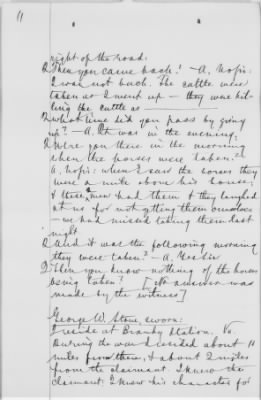 11
right of the road.
Q. Then you came back? - A. No sir:
I was not back. The cattle were
taken as I went up - they were kil-
ling the cattle as
Q. What time did you pass by going
up? - A. It was in the evening.
Q. Were you there in the morning
when the horses were taken? -
A. No sir: when I saw the horses they
were a mile above his house;
& these men had them & they laughed
at us for not getting them ourselves
- we had missed taking them last
night
Q. And it was the following morning
they were taken? - A. Yes Sir
Q. Then you know nothing of the horses
being taken? [No answer was
made by the witness]
George W. Stone, sworn:
I reside at Brandy Station, Va.
During the war I resided about 11
miles from there, & about 2 miles
from the claimant. I knew the
claimant. I knew his character for